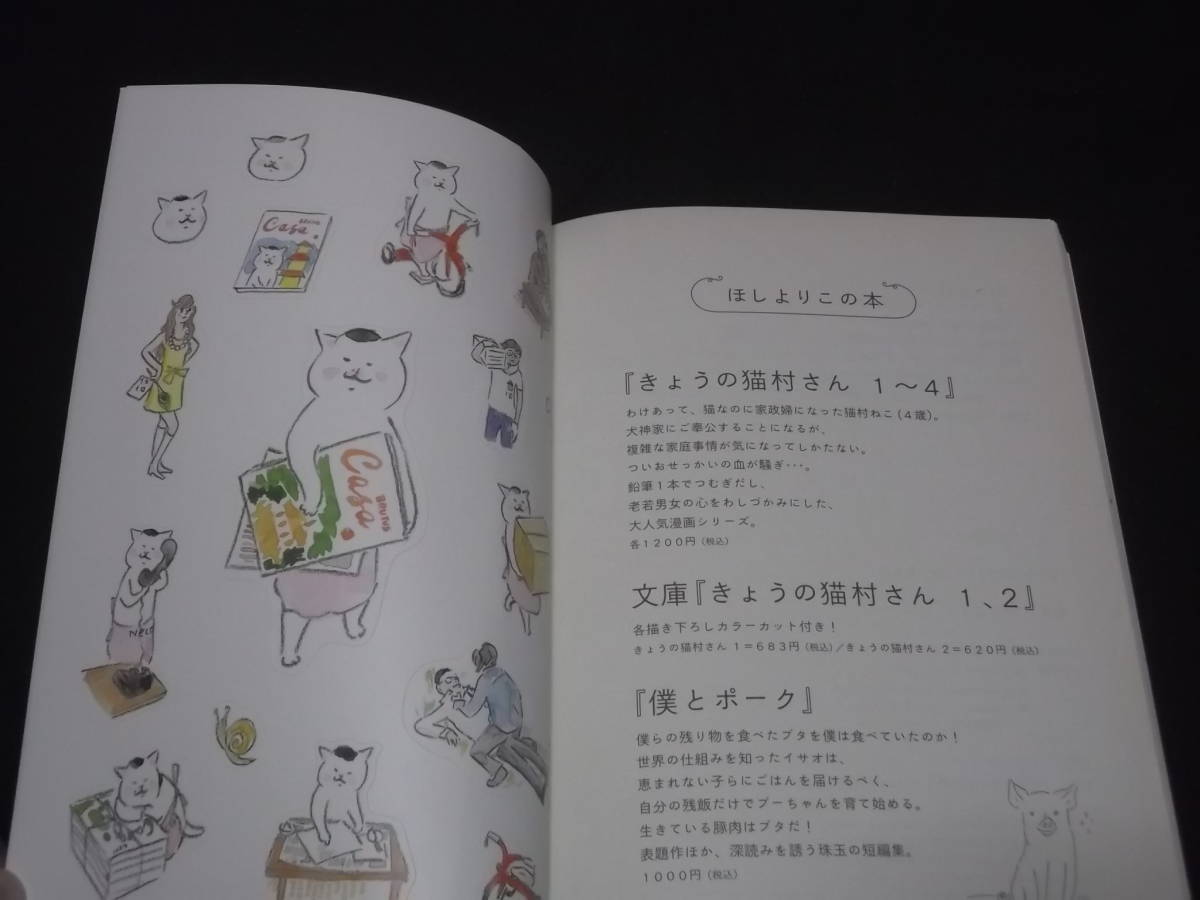 BRUTUS
Casa
BRUTUS
Casa
NEKO
ほしよりこの本
『きょうの猫村さん 1〜4』
わけあって、猫なのに家政婦になった猫村ねこ(4歳)。
犬神家にご奉公することになるが、
複雑な家庭事情が気になってしかたない。
ついおせっかいの血が騒ぎ・・・。
鉛筆1本でつむぎだし、
老若男女の心をわしづかみにした、
大人気漫画シリーズ。
各1200円(税込)
文庫『きょうの猫村さん 1、2』
各描き下ろしカラーカット付き!
きょうの猫村さん 1=683円(税込)/きょうの猫村さん 2=620円(税込)
『僕とポーク』
僕らの残り物を食べたブタを僕は食べていたのか!
世界の仕組みを知ったイサオは、
恵まれない子らにごはんを届けるべく、
自分の残飯だけでブーちゃんを育て始める。
生きている豚肉はブタだ!
表題作ほか、深読みを誘う珠玉の短編集。
1000円(税込)